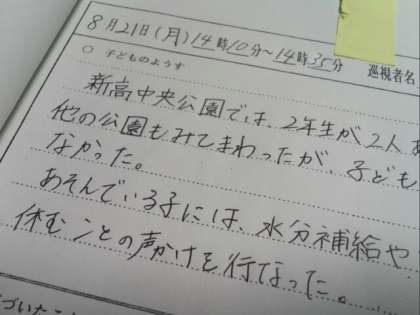 8月21日(月)14時10分～14時35分 巡視者名
○ 子どものようす
新高中央公園では、2年生が2人
他の公園もみてまわったが、子ども
なかった。
あそんでいる子には、水分補給や
休むことの声かけを行なった。
づいたこと